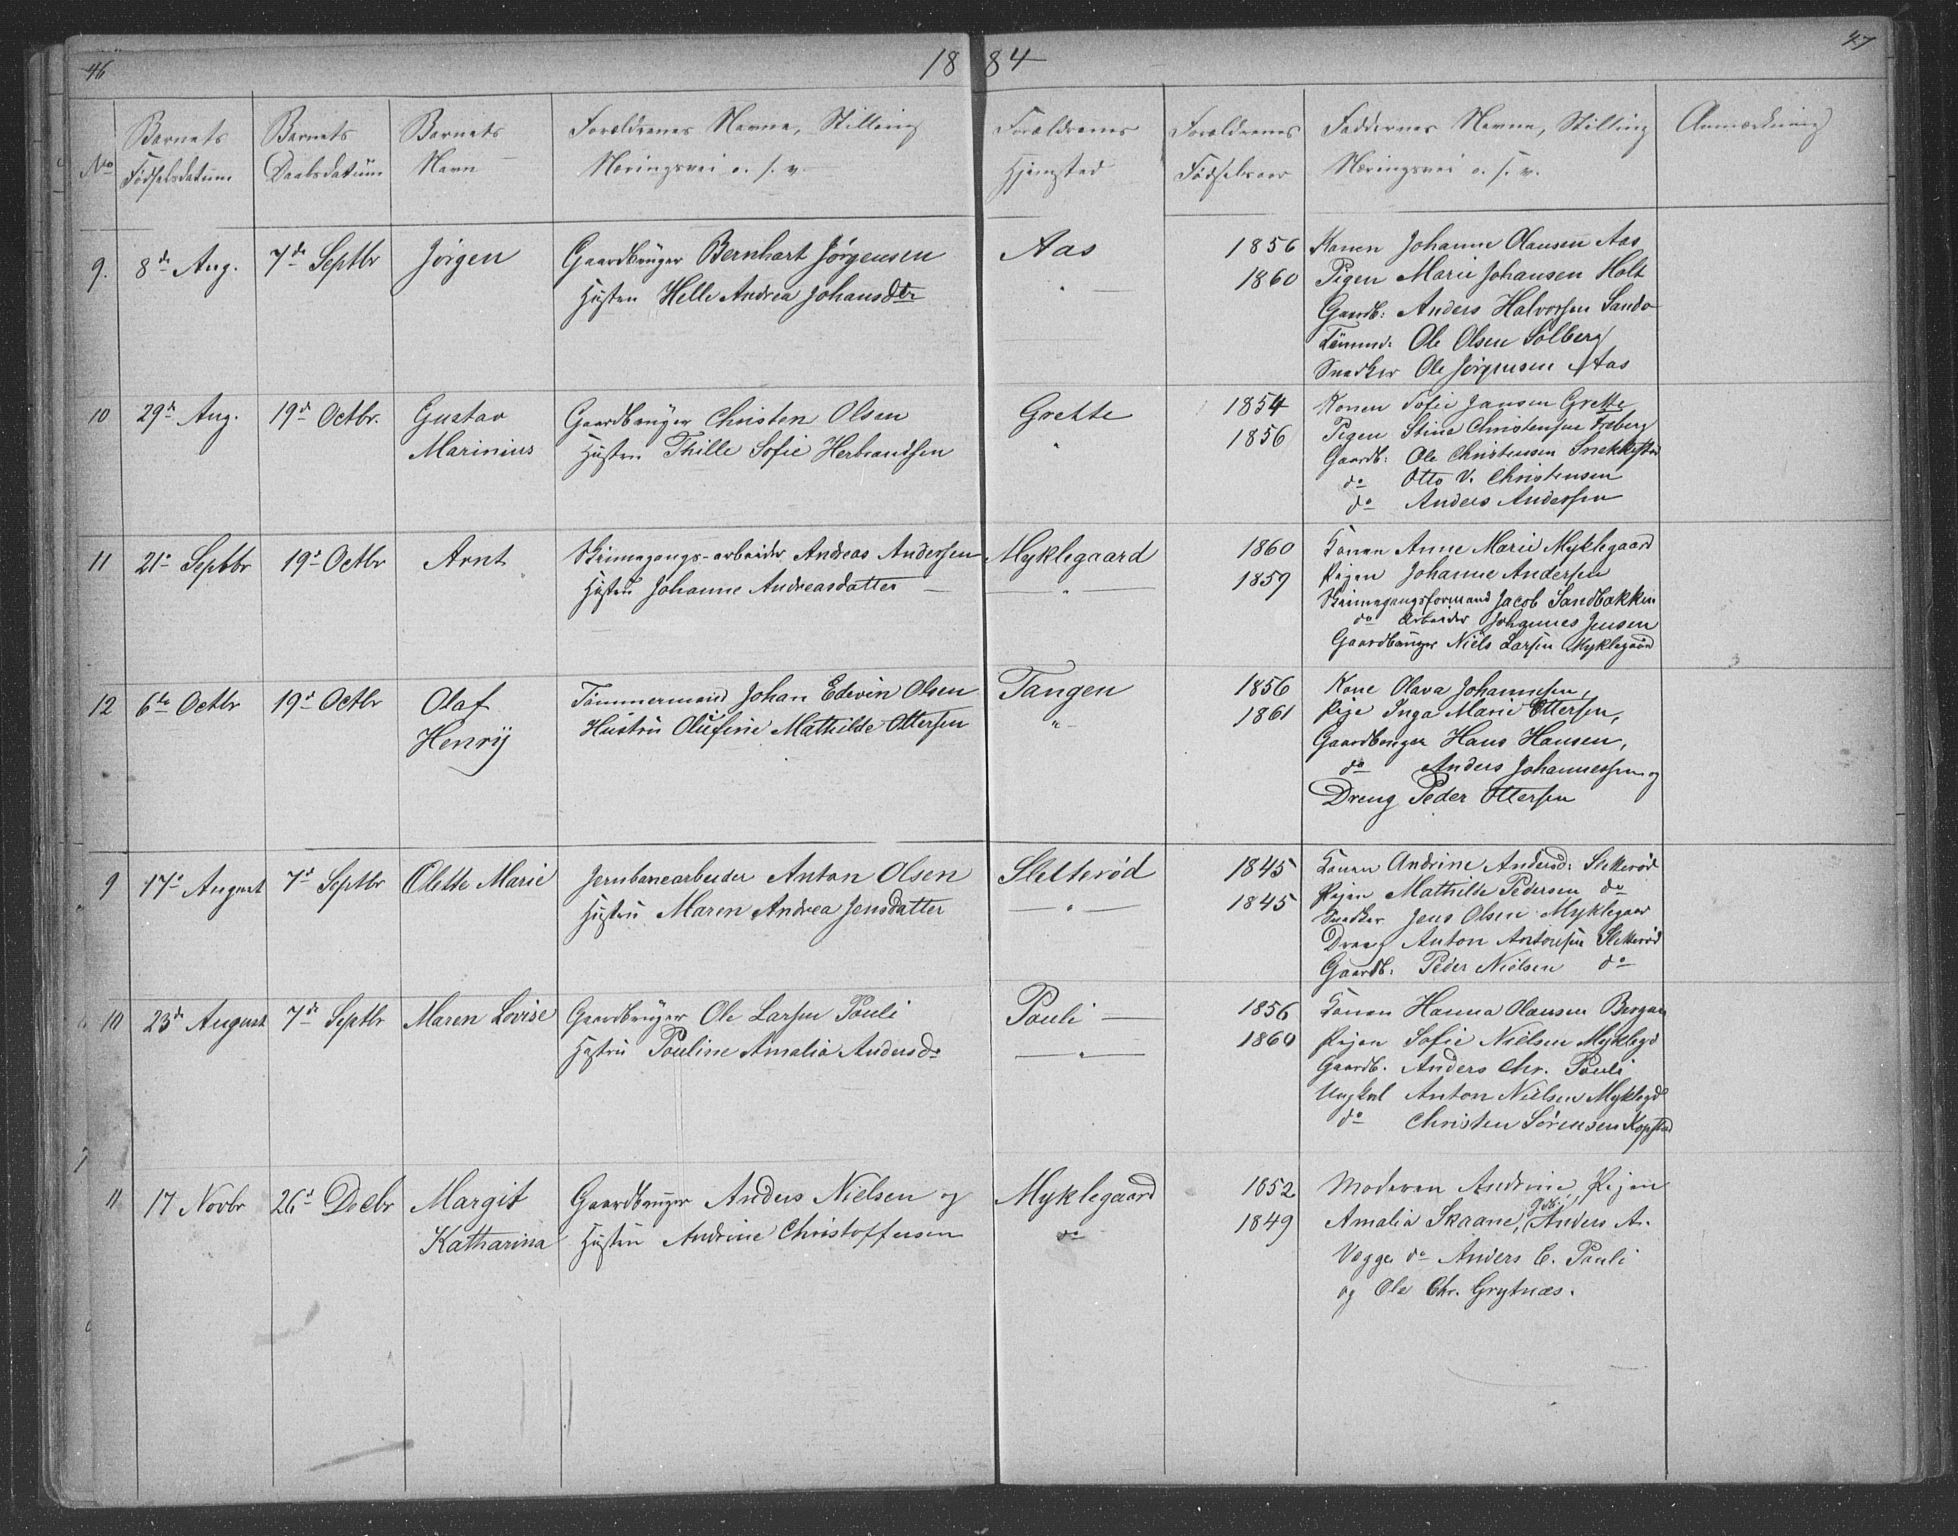 46
18 84
47
No
Barnets Fødselsdatum
Barnets Daabsdatum
Barnets Navn
Forældrenes Navne, Stilling
Næringsvei o. s. v.
Forældrenes Hjemsted
Forældrenes Fødselsaar
Faddernes Navne, Stilling
Næringsvei o. s. v.
Anmærkning
9. 8de Aug. 7de Septbr Jørgen
Gaardbruger Bernhart Jørgensen
Hustru Helle Andrea Johansdtr
Aas
" —
1856
1860
Konen Johanne Olausen Aas
Pigen Marie Johansen Holt
Gaardb: Anders Halvorsen Sando
Tømmd. Ole Olsen Solberg
Snedker Ole Jørgensen Aas
10 29d Aug. 19d Octbr. Gustav
Marinius
Gaardbruger Christen Olsen
Hustru Thille Sofie Herbrandsen
Grette
"
1854
1856
Konen Sofie Jansen Grette
Pigen Stine Christensen
Gaardb: Ole Christensen Snekkestad
do Otto V. Christensen
do Anders Andersen
11 21 Septbr 19 Octbr Arnt
-arbeider Andreas Andersen
Hustru Johanne Andreasdatter —
Myklegaard
— " —
1860
1859
Konen Anne Marie Myklegaard
Pigen Johanne Andersen
Jacob Sandbakken
do Arbeider Johannes Jensen
Gaardbruger Niels Larsen Myklegaard
12 6te Octbr 19 Octbr Olaf
Henrij
Tømmermand Johan Edvin Olsen
Hustru Olufine Mathilde Ottersen
Tangen
" —
1856
1861
Kone Olava Johannesen,
Pige Inga Marie Ottersen,
Gaardbruger Hans Hansen,
do Anders Johannessen og
Dreng Peder Ottersen
9 17 August 7d Septbr Olette Marie
Jernbanearbeider Anton Olsen
Hustru Maren Andrea Jensdatter
Sletterød
— " —
1845
1845
Konen Andrine Andersd: Sletterød
Pigen Mathilde Pedersen do
Snedker Jens Olsen Myklegaar
Dreng Anton Antonsen Sletterød
Gaardb: Peder Nielsen do
10 23d August 7de Septbr Maren Lovise
Gaardbruger Ole Larsen Pauli
Hustru Pauline Amalia Andersd.
Pauli —
— " —
1856
1860
Konen Hanna Olausen Bergan
Pigen Sofie Nielsen Myklegd
Gaardb. Anders Chr. Pauli
Ungkal Anton Nielsen Myklegd
do Christen Sørensen Kopstad
11 17 Novbr 26d Decbr Margit
Katharina
Gaardbruger Anders Nielsen og
Hustru Andrine Christoffersen
Myklegaard
do
1852
1849
Moderen Andrine, Pigen
Amalia Skaane, Anders A.
Vegge do Anders C. Pauli
og Ole Chr. Grytnæs.